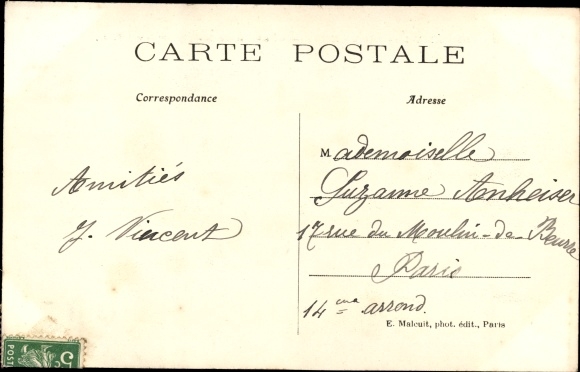 CARTE POSTALE
Correspondance
Amitiés
J. Vincent
Adresse
Mademoiselle
Suzanne Anheiser
17 rue du Moulin-de-Beurre
Paris
14eme arrond.
E. Malcuit, phot. édit., Paris
5c
POST